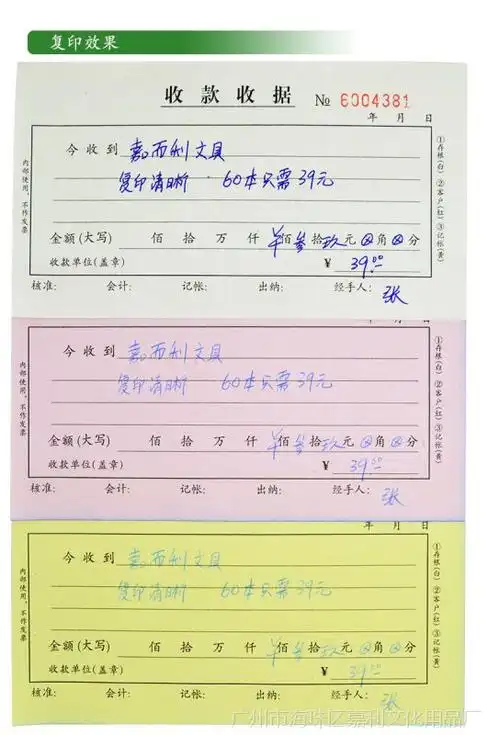 复印效果
收款收据 № 6004381
年 月 日
今收到 嘉而利文具
复印清晰 · 60本只需39元
金额(大写) 佰 拾 万 仟 佰 叁 拾 玖 元 ⊗ 角 ⊗ 分
收款单位(盖章) ¥ 39.00
核准: 会计: 记帐: 出纳: 经手人: 张
内部使用,不作发票
①存根(白) ②客户(红) ③记帐(黄)
年 月 日
今收到 嘉而利文具
复印清晰 60本只需39元
金额(大写) 佰 拾 万 仟 佰 叁 拾 玖 元 ⊗ 角 ⊗ 分
收款单位(盖章) ¥ 39.00
核准: 会计: 记帐: 出纳: 经手人: 张
内部使用,不作发票
①存根(白) ②客户(红) ③记帐(黄)
年 月 日
今收到 嘉而利文具
复印清晰 60本只需39元
金额(大写) 佰 拾 万 仟 佰 叁 拾 玖 元 ⊗ 角 ⊗ 分
收款单位(盖章) ¥ 39.00
核准: 会计: 记帐: 出纳: 经手人: 张
内部使用,不作发票
①存根(白) ②客户(红) ③记帐(黄)
广州市海珠区嘉利文化用品厂